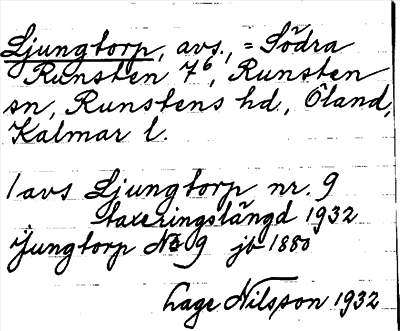 Ljungtorp, avs., = Södra
Runsten 7⁶, Runsten
sn, Runstens hd, Öland,
Kalmar l.
1 avs Ljungtorp nr. 9
taxeringslängd 1932
Ljungtorp No 9 jb 1880
Lage Nilsson 1932